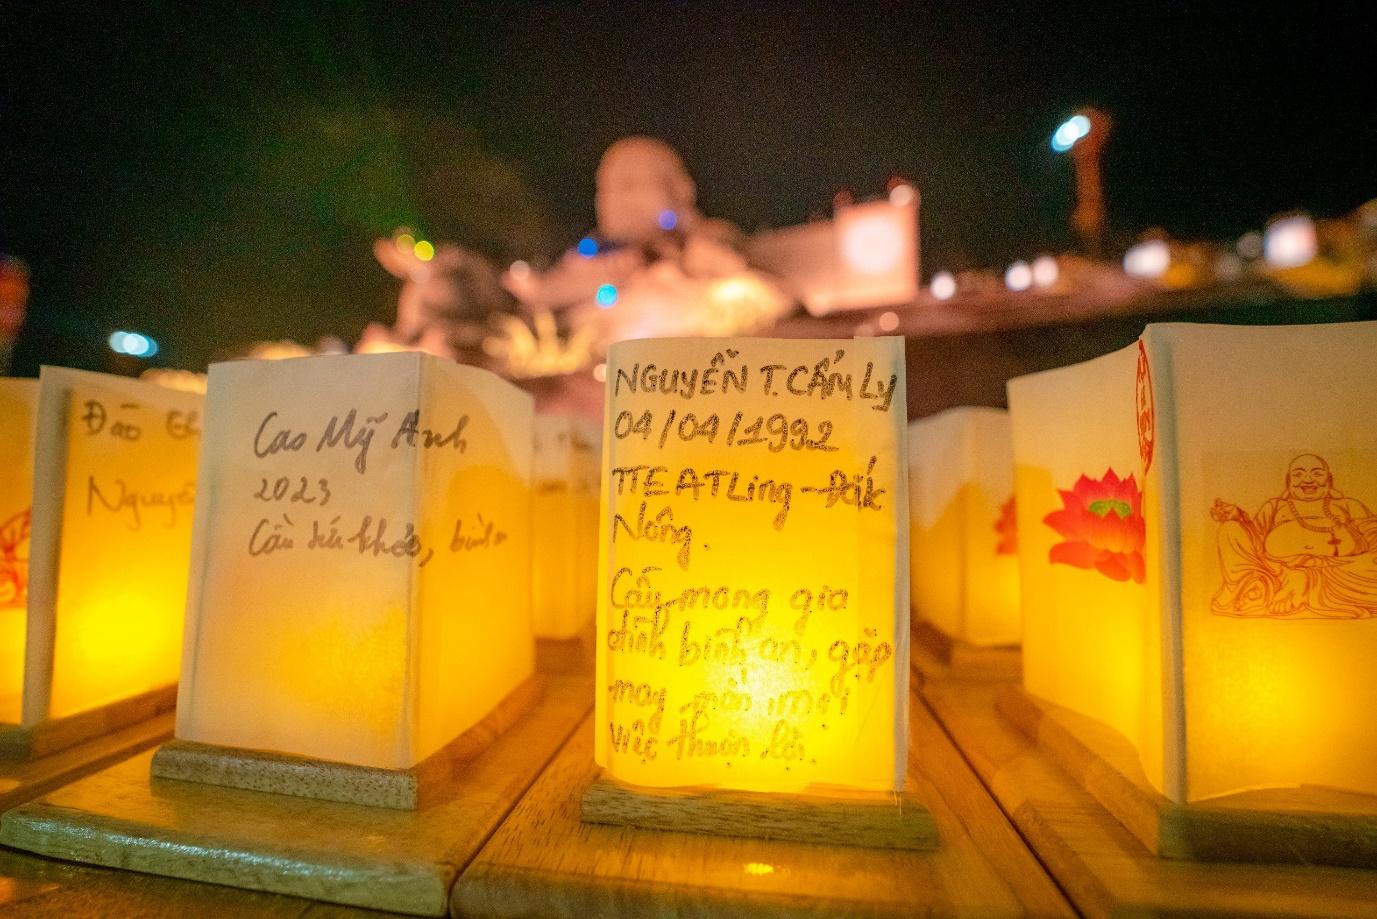 Đào
Nguyễ
Cao Mỹ Anh
2023
Cầu sức khỏe, bình
NGUYỄN T. CẨM LY
04/04/1992
TTEATLing - Đắk
Nông.
Cầu mong gia
đình bình an, gặp
may mắn, mọi
việc thuận lợi.